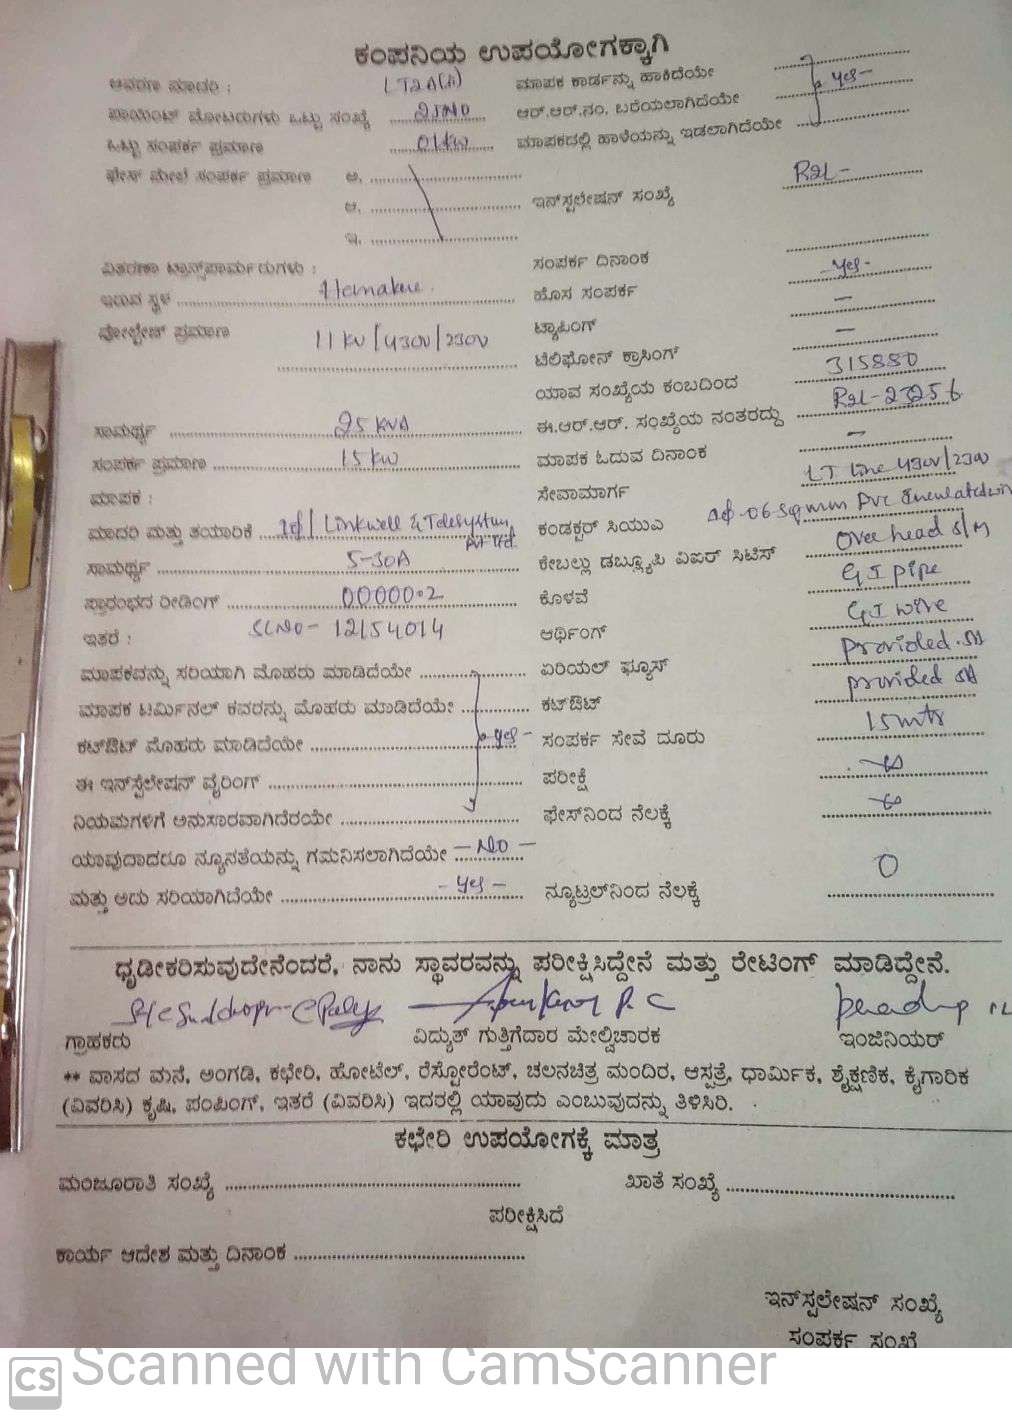 ಕಂಪನಿಯ ಉಪಯೋಗಕ್ಕಾಗಿ
ಆವರಣ ಮಾದರಿ : LT2A(A) ಮಾಪಕ ಕಾರ್ಡನ್ನು ಹಾಕಿದೆಯೇ ....................
ಪಾಯಿಂಟ್ ಮೋಟರುಗಳು ಒಟ್ಟು ಸಂಖ್ಯೆ ........ ಆರ್.ಆರ್.ನಂ. ಬರೆಯಲಾಗಿದೆಯೇ .......... yes -
ಒಟ್ಟು ಸಂಪರ್ಕ ಪ್ರಮಾಣ ....01KW.... ಮಾಪಕದಲ್ಲಿ ಹಾಳೆಯನ್ನು ಇಡಲಾಗಿದೆಯೇ ....................
ಫೇಸ್ ಮೇಲೆ ಸಂಪರ್ಕ ಪ್ರಮಾಣ ಅ. ....................
ಆ. .................... ಇನ್‌ಸ್ಟಲೇಷನ್ ಸಂಖ್ಯೆ R2L -
ಇ. ....................
ವಿತರಣಾ ಟ್ರಾನ್ಸ್‌ಫಾರ್ಮರುಗಳು : ಸಂಪರ್ಕ ದಿನಾಂಕ ....................
ಇರುವ ಸ್ಥಳ .................... ಹೊಸ ಸಂಪರ್ಕ - yes -
ವೋಲ್ಟೇಜ್ ಪ್ರಮಾಣ 11 KV / 430V / 230V ಟ್ಯಾಪಿಂಗ್ —
ಟೆಲಿಫೋನ್ ಕ್ರಾಸಿಂಗ್ —
ಯಾವ ಸಂಖ್ಯೆಯ ಕಂಬದಿಂದ 315880
ಸಾಮರ್ಥ್ಯ .......... 25 KVA .......... ಈ.ಆರ್.ಆರ್. ಸಂಖ್ಯೆಯ ನಂತರದ್ದು R2L-23256
ಸಂಪರ್ಕ ಪ್ರಮಾಣ .......... 15 KW .......... ಮಾಪಕ ಓದುವ ದಿನಾಂಕ —
ಮಾಪಕ : ಸೇವಾಮಾರ್ಗ LT line 430V/230V
ಮಾದರಿ ಮತ್ತು ತಯಾರಿಕೆ 1φ / Linkwell & Telesystem Pvt Ltd. ಕಂಡಕ್ಟರ್ ಸಿಯುವಿ 06 sqmm Pvc
ಸಾಮರ್ಥ್ಯ .......... 5-30A .......... ಕೇಬಲ್ಲು ಡಬ್ಲ್ಯೂಪಿ ವಿಐರ್ ಸಿಟಿಸ್ Over head S/M
ಪ್ರಾರಂಭದ ರೀಡಿಂಗ್ .......... 00000.2 .......... ಕೊಳವೆ GI pipe
ಇತರೆ : SL NO - 12154014 ಆರ್ಥಿಂಗ್ GI wire
ಮಾಪಕವನ್ನು ಸರಿಯಾಗಿ ಮೊಹರು ಮಾಡಿದೆಯೇ .......... ಏರಿಯಲ್ ಫ್ಯೂಸ್ Provided
ಮಾಪಕ ಟರ್ಮಿನಲ್ ಕವರನ್ನು ಮೊಹರು ಮಾಡಿದೆಯೇ .......... ಕಟ್‌ಔಟ್ provided
ಕಟ್‌ಔಟ್ ಮೊಹರು ಮಾಡಿದೆಯೇ .......... yes - ಸಂಪರ್ಕ ಸೇವೆ ದೂರು 15 mts
ಈ ಇನ್‌ಸ್ಟಲೇಷನ್ ವೈರಿಂಗ್ .......... ಪರೀಕ್ಷೆ
ನಿಯಮಗಳಿಗೆ ಅನುಸಾರವಾಗಿದೆಯೇ .......... ಫೇಸ್‌ನಿಂದ ನೆಲಕ್ಕೆ
ಯಾವುದಾದರೂ ನ್ಯೂನತೆಯನ್ನು ಗಮನಿಸಲಾಗಿದೆಯೇ - NO -
ಮತ್ತು ಅದು ಸರಿಯಾಗಿದೆಯೇ .......... - yes - ನ್ಯೂಟ್ರಲ್‌ನಿಂದ ನೆಲಕ್ಕೆ 0
ಧೃಡೀಕರಿಸುವುದೇನೆಂದರೆ, ನಾನು ಸ್ಥಾವರವನ್ನು ಪರೀಕ್ಷಿಸಿದ್ದೇನೆ ಮತ್ತು ರೇಟಿಂಗ್ ಮಾಡಿದ್ದೇನೆ.
ಗ್ರಾಹಕರು ವಿದ್ಯುತ್ ಗುತ್ತಿಗೆದಾರ ಮೇಲ್ವಿಚಾರಕ ಇಂಜಿನಿಯರ್
** ವಾಸದ ಮನೆ, ಅಂಗಡಿ, ಕಛೇರಿ, ಹೋಟೆಲ್, ರೆಸ್ಟೋರೆಂಟ್, ಚಲನಚಿತ್ರ ಮಂದಿರ, ಆಸ್ಪತ್ರೆ, ಧಾರ್ಮಿಕ, ಶೈಕ್ಷಣಿಕ, ಕೈಗಾರಿಕೆ
(ವಿವರಿಸಿ) ಕೃಷಿ, ಪಂಪಿಂಗ್, ಇತರೆ (ವಿವರಿಸಿ) ಇದರಲ್ಲಿ ಯಾವುದು ಎಂಬುವುದನ್ನು ತಿಳಿಸಿರಿ.
ಕಛೇರಿ ಉಪಯೋಗಕ್ಕೆ ಮಾತ್ರ
ಮಂಜೂರಾತಿ ಸಂಖ್ಯೆ .................... ಖಾತೆ ಸಂಖ್ಯೆ ....................
ಪರೀಕ್ಷಿಸಿದೆ
ಕಾರ್ಯ ಆದೇಶ ಮತ್ತು ದಿನಾಂಕ ....................
ಇನ್‌ಸ್ಟಲೇಷನ್ ಸಂಖ್ಯೆ
ಸಂಪರ್ಕ ಸಂಖ್ಯೆ
CS Scanned with CamScanner